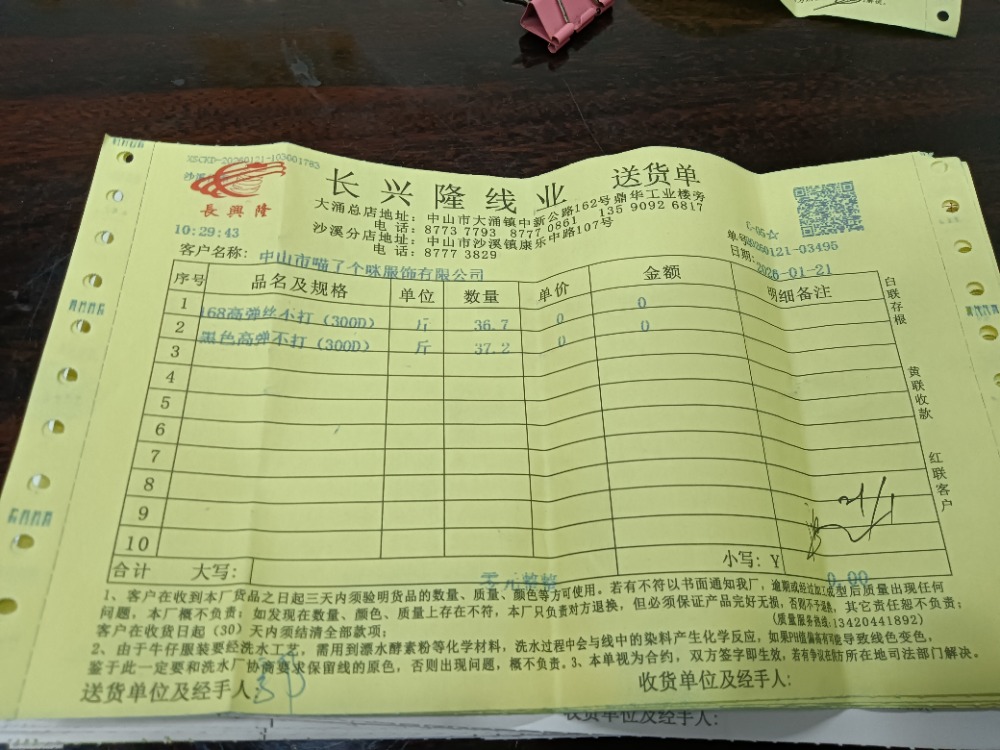 XSCKD-20260121-103001783
長興隆
长兴隆线业 送货单
大涌总店地址: 中山市大涌镇中新公路162号鼎华工业楼旁
电话: 8773 7793 8777 0861 135 9092 6817
沙溪分店地址: 中山市沙溪镇康乐中路107号
电话: 8777 3829
10:29:43
单号20260121-03495
日期: 2026-01-21
客户名称: 中山市喵了个咪服饰有限公司
序号 品名及规格 单位 数量 单价 金额 明细备注
1 168高弹丝不打（300D） 斤 36.7 0 0
2 黑色高弹不打（300D） 斤 37.2 0 0
3
4
5
6
7
8
9
10
合计 大写: 零元整整 小写: Y 0.00
白联存根
黄联收款
红联客户
1、客户在收到本厂货品之日起三天内须验明货品的数量、质量、颜色等方可使用。若有不符以书面通知我厂，逾期或经过加工成型后质量出现任何
问题，本厂概不负责；如发现在数量、颜色、质量上存在不符，本厂只负责对方退换，但必须保证产品完好无损，否则不予退换，其它责任恕不负责；
客户在收货日起（30）天内须结清全部款项； (质量服务热线:13420441892)
2、由于牛仔服装要经洗水工艺，需用到漂水酵素粉等化学材料，洗水过程中会与线中的染料产生化学反应，如果PH值偏高有可能导致线色变色，
鉴于此一定要和洗水厂协商要求保留线的原色，否则出现问题，概不负责。3、本单视为合约，双方签字即生效，若有争议在我方所在地司法部门解决。
送货单位及经手人: 收货单位及经手人:
收货单位及经手人: